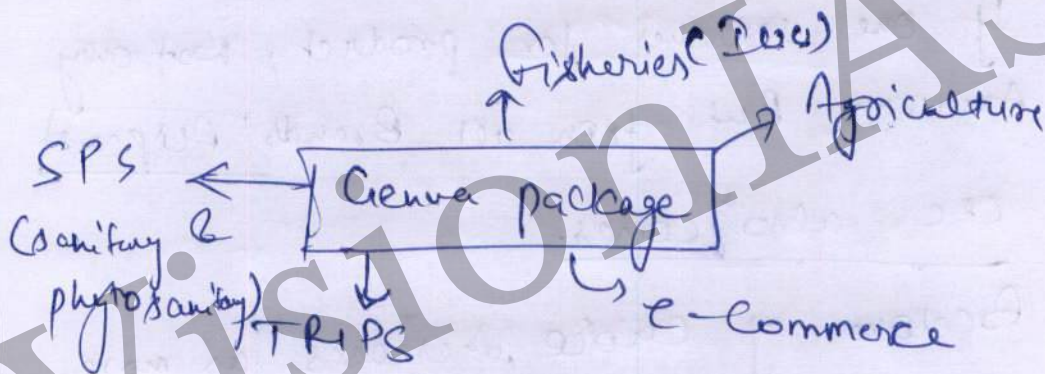 Fisheries (IUU)
Agriculture
SPS
(Sanitary &
phytosanitary)
Genva package
TRIPS
e-Commerce
VisionIAS